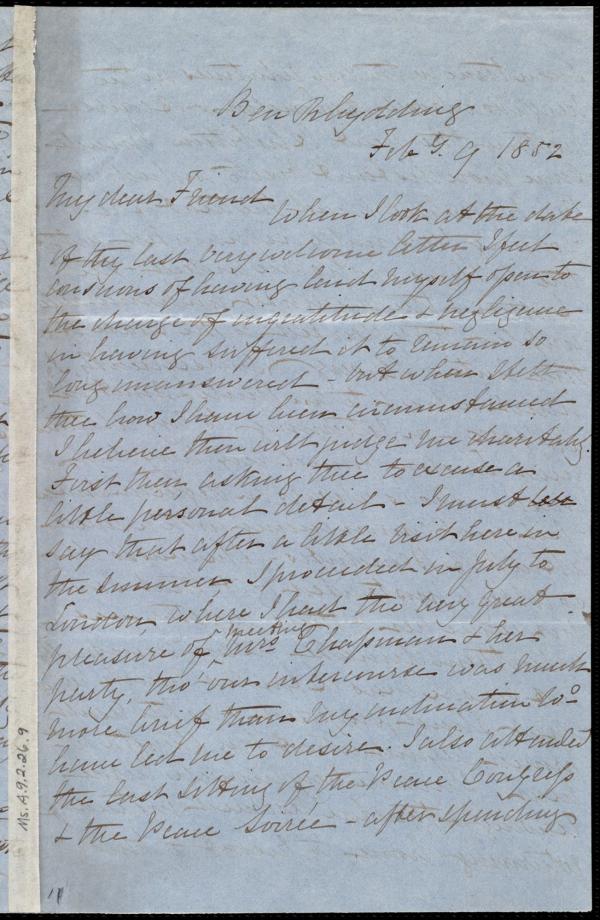 Ben Rhydding
Feby. 9 1852
My dear Friend
When I look at the date
of thy last very welcome letter I feel
conscious of having laid myself open to
the charge of ingratitude & negligence
in having suffered it to remain so
long unanswered - but when I tell
thee how I have been circumstanced
I believe thou wilt judge me charitably.
First then asking thee to excuse a
little personal detail - I must
say that after a little visit here in
the summer I proceeded in July to
London, where I had the very great
pleasure of meeting Mrs Chapman & her
party, tho' our intercourse was much
more brief than my inclination wod
have led me to desire. I also attended
the last sitting of the Peace Congress
& the Peace Soirée - after spending
Ms. A.9.2.26.9